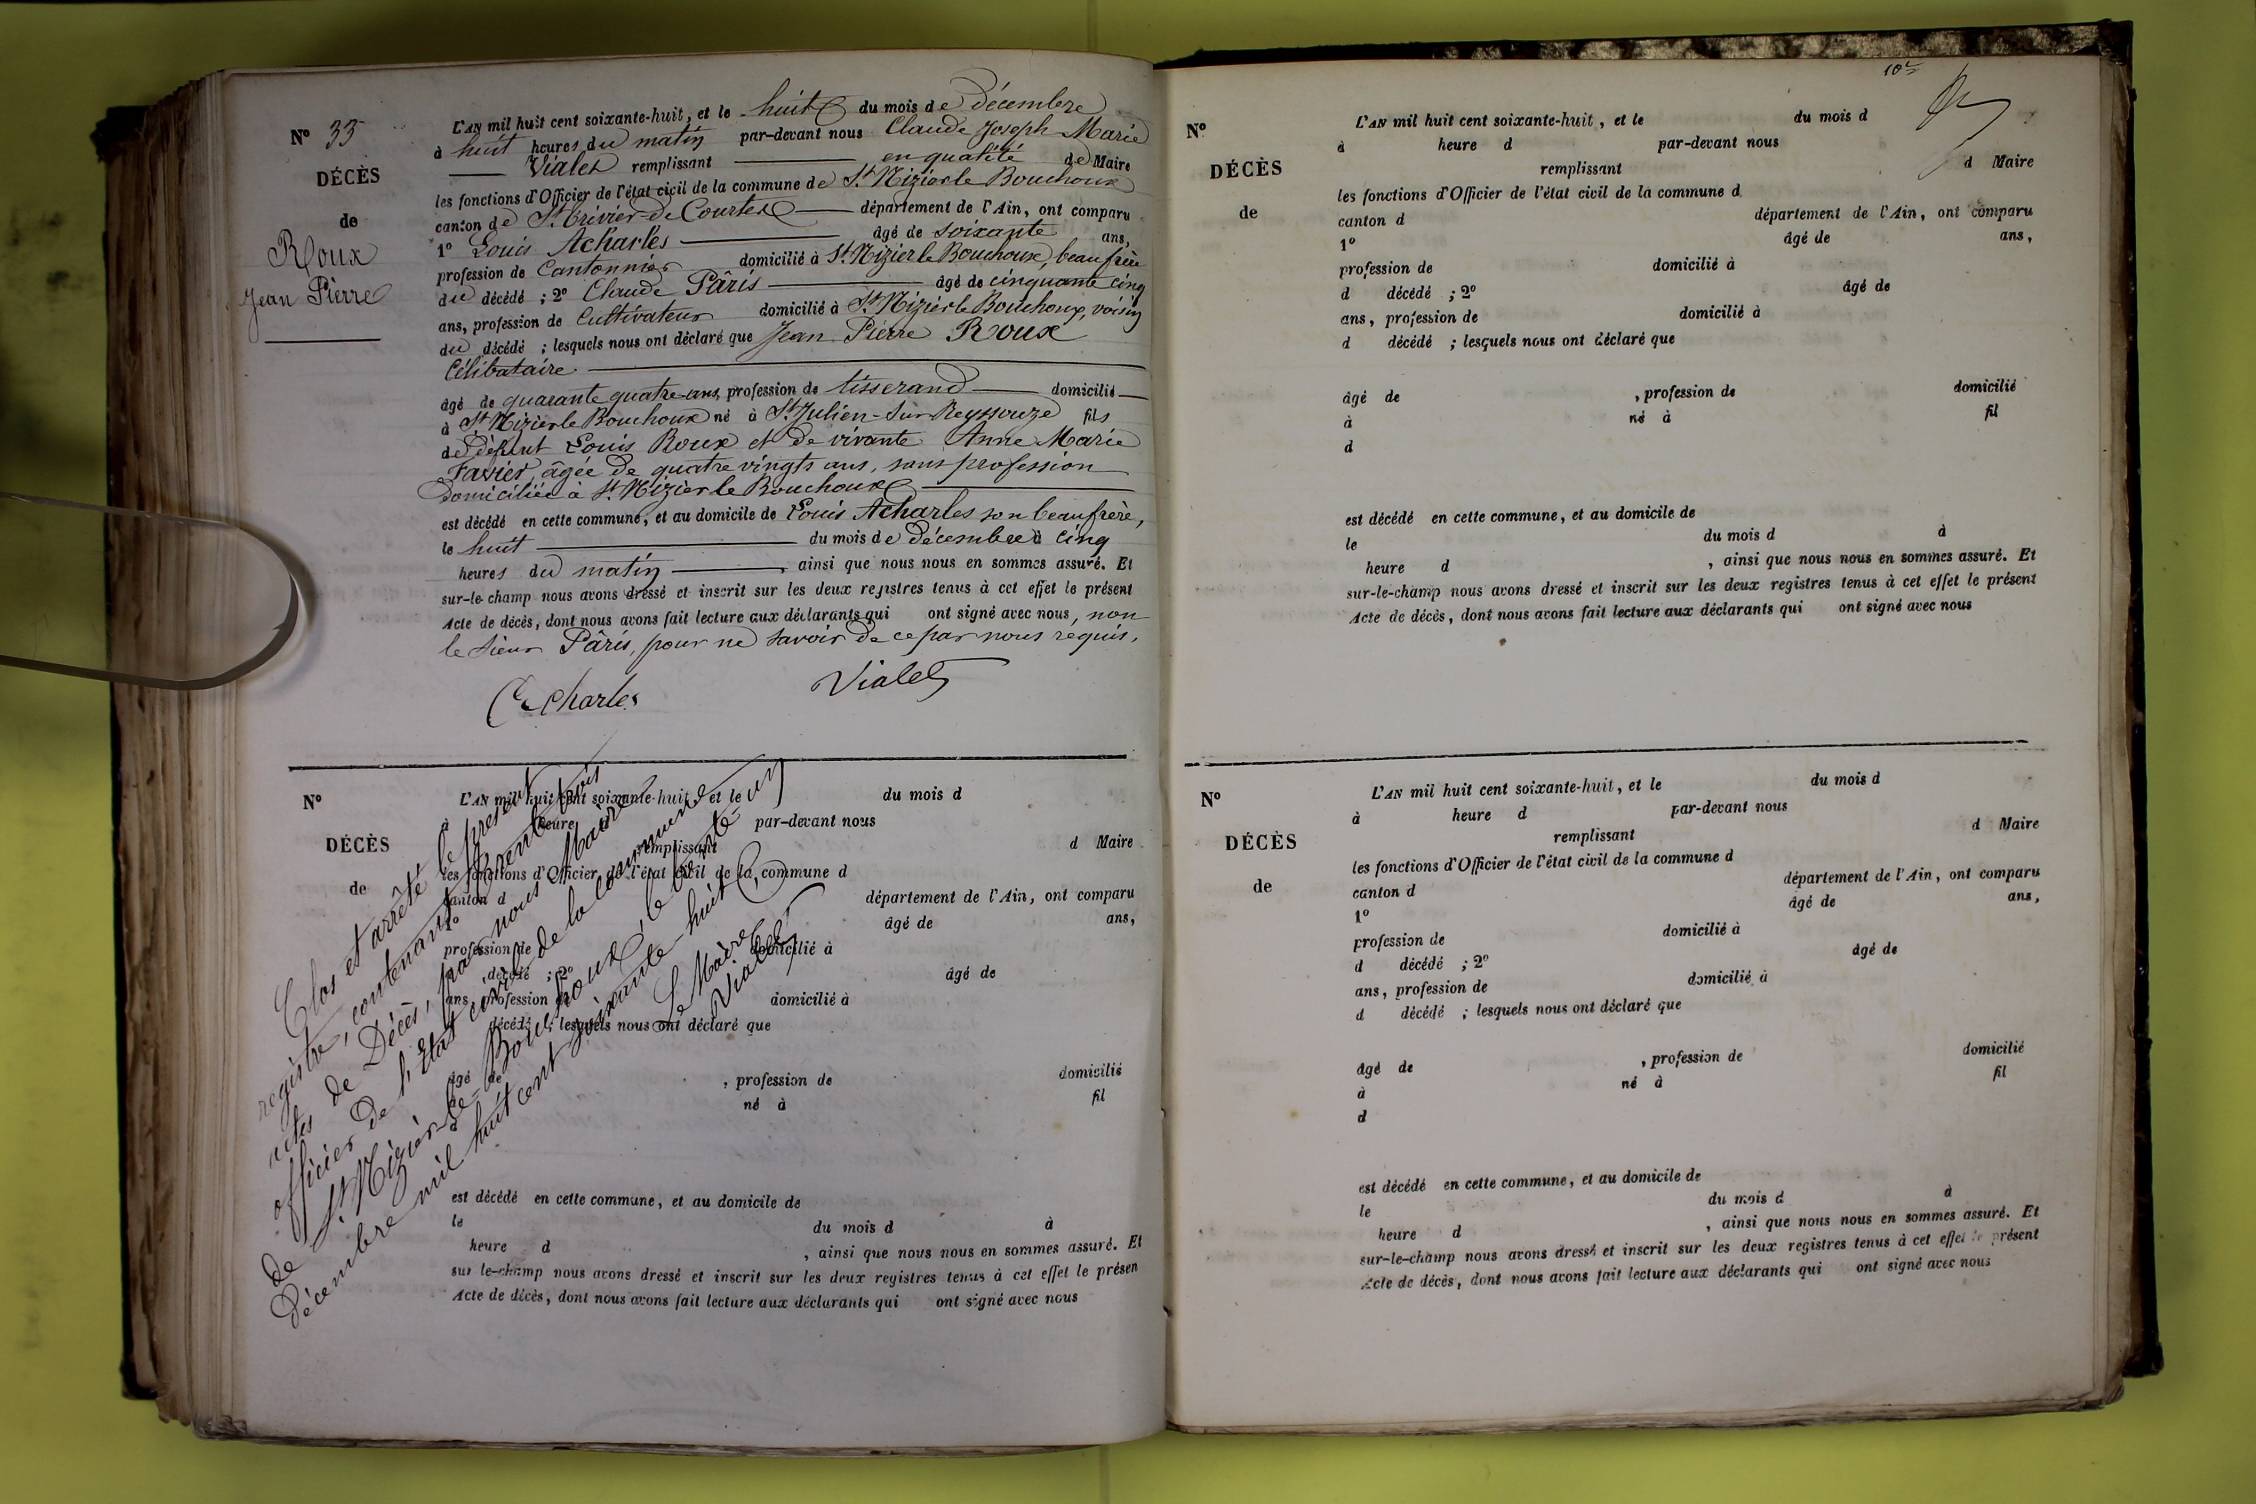 N° 33
DÉCÈS
de
Roux
Jean Pierre
L'AN mil huit cent soixante-huit, et le huit du mois de décembre
à huit heures du matin par-devant nous Claude Joseph Marie
Vialet remplissant en qualité de Maire
les fonctions d'Officier de l'état civil de la commune de St Nizier le Bouchoux
canton de St Trivier de Courtes département de l'Ain, ont comparu
1° Louis Acharles âgé de soixante ans,
profession de Cantonnier domicilié à St Nizier le Bouchoux, beau frère
du décédé ; 2° Claude Pâris âgé de cinquante cinq
ans, profession de Cultivateur domicilié à St Nizier le Bouchoux, voisin
du décédé ; lesquels nous ont déclaré que Jean Pierre Roux
Célibataire
âgé de quarante quatre ans, profession de tisserand domicilié
à St Nizier le Bouchoux né à St Julien-sur Reyssouze fils
de défunt Louis Roux et de vivante Anne Marie
Favier, âgée de quatre vingts ans, sans profession
domiciliée à St Nizier le Bouchoux
est décédé en cette commune, et au domicile de Louis Acharles son beau frère,
le huit du mois de décembre à cinq
heures du matin ainsi que nous nous en sommes assuré. Et
sur-le-champ nous avons dressé et inscrit sur les deux registres tenus à cet effet le présent
Acte de décès, dont nous avons fait lecture aux déclarants qui ont signé avec nous, non
le sieur Pâris, pour ne savoir de ce par nous requis.
Acharles Vialet
N°
DÉCÈS
de
L'AN mil huit cent soixante-huit, et le du mois d
à heure d par-devant nous
remplissant d Maire
les fonctions d'Officier de l'état civil de la commune d
canton d département de l'Ain, ont comparu
1° âgé de ans,
profession de domicilié à
d décédé ; 2° âgé de
ans, profession de domicilié à
d décédé ; lesquels nous ont déclaré que
âgé de , profession de domicilié
à né à fil
d
est décédé en cette commune, et au domicile de
le du mois d à
heure d , ainsi que nous nous en sommes assuré. Et
sur le-champ nous avons dressé et inscrit sur les deux registres tenus à cet effet le présen
Acte de décès, dont nous avons fait lecture aux déclarants qui ont signé avec nous
Clos et arrêté le présent
registre, contenant trente trois
actes de Décès, par nous Maire
officier de l'Etat civil de la commune
de St Nizier-le-Bouchoux, le trente-un
Décembre mil huit cent soixante-huit
Le Maire
Vialet
N°
DÉCÈS
de
L'AN mil huit cent soixante-huit, et le du mois d
à heure d par-devant nous
remplissant d Maire
les fonctions d'Officier de l'état civil de la commune d
canton d département de l'Ain, ont comparu
1° âgé de ans,
profession de domicilié à
d décédé ; 2° âgé de
ans, profession de domicilié à
d décédé ; lesquels nous ont déclaré que
âgé de , profession de domicilié
à né à fil
d
est décédé en cette commune, et au domicile de
le du mois d à
heure d , ainsi que nous nous en sommes assuré. Et
sur-le-champ nous avons dressé et inscrit sur les deux registres tenus à cet effet le présent
Acte de décès, dont nous avons fait lecture aux déclarants qui ont signé avec nous
N°
DÉCÈS
de
L'AN mil huit cent soixante-huit, et le du mois d
à heure d par-devant nous
remplissant d Maire
les fonctions d'Officier de l'état civil de la commune d
canton d département de l'Ain, ont comparu
1° âgé de ans,
profession de domicilié à
d décédé ; 2° âgé de
ans, profession de domicilié à
d décédé ; lesquels nous ont déclaré que
âgé de , profession de domicilié
à né à fil
d
est décédé en cette commune, et au domicile de
le du mois d à
heure d , ainsi que nous nous en sommes assuré. Et
sur-le-champ nous avons dressé et inscrit sur les deux registres tenus à cet effet le présent
Acte de décès, dont nous avons fait lecture aux déclarants qui ont signé avec nous